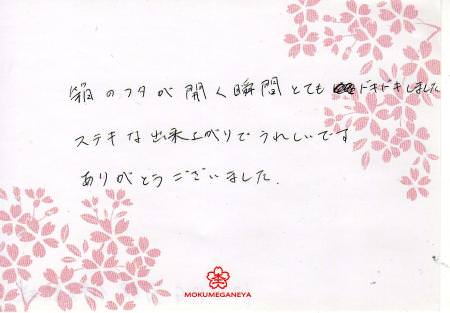 箱のフタが開く瞬間とてもドキドキしました
ステキな出来上がりでうれしいです
ありがとうございました.
MOKUMEGANEYA